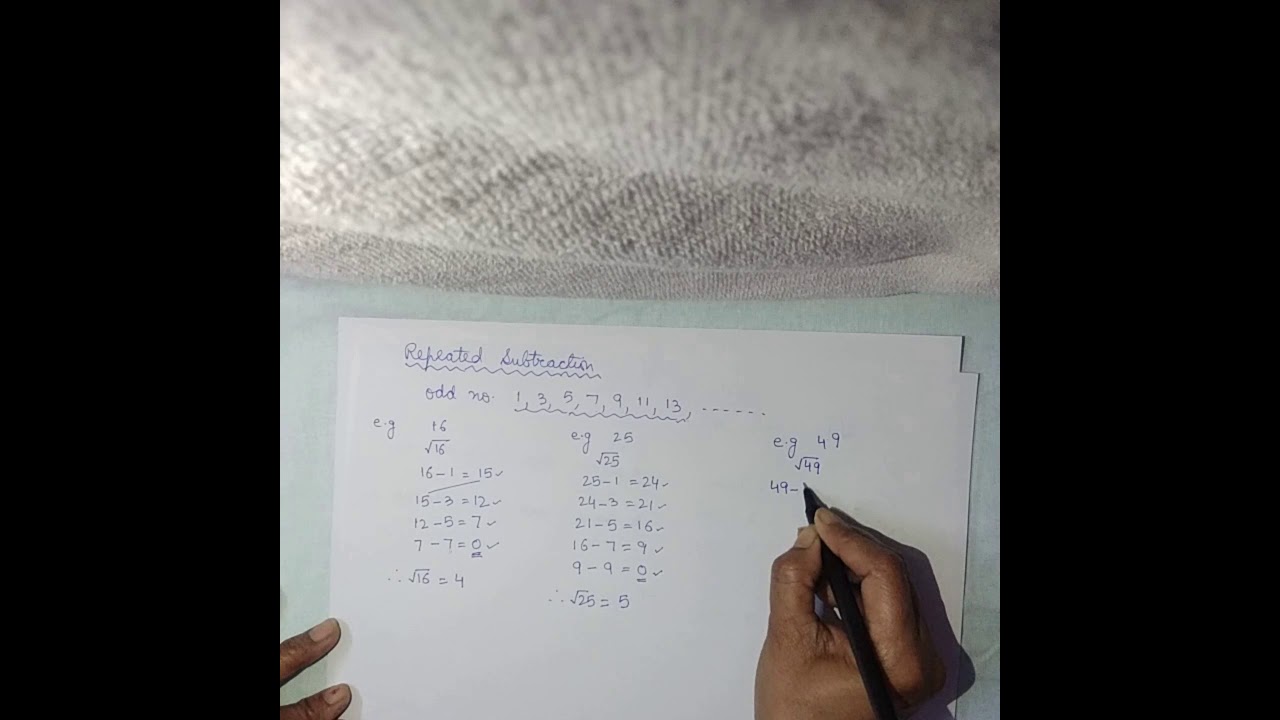 Repeated Subtraction
odd no. 1, 3, 5, 7, 9, 11, 13, ------
e.g 16
√16
16-1 = 15✓
15-3 = 12✓
12-5 = 7✓
7-7 = 0✓
∴ √16 = 4
e.g 25
√25
25-1 = 24✓
24-3 = 21✓
21-5 = 16✓
16-7 = 9✓
9-9 = 0✓
∴ √25 = 5
e.g 49
√49
49-